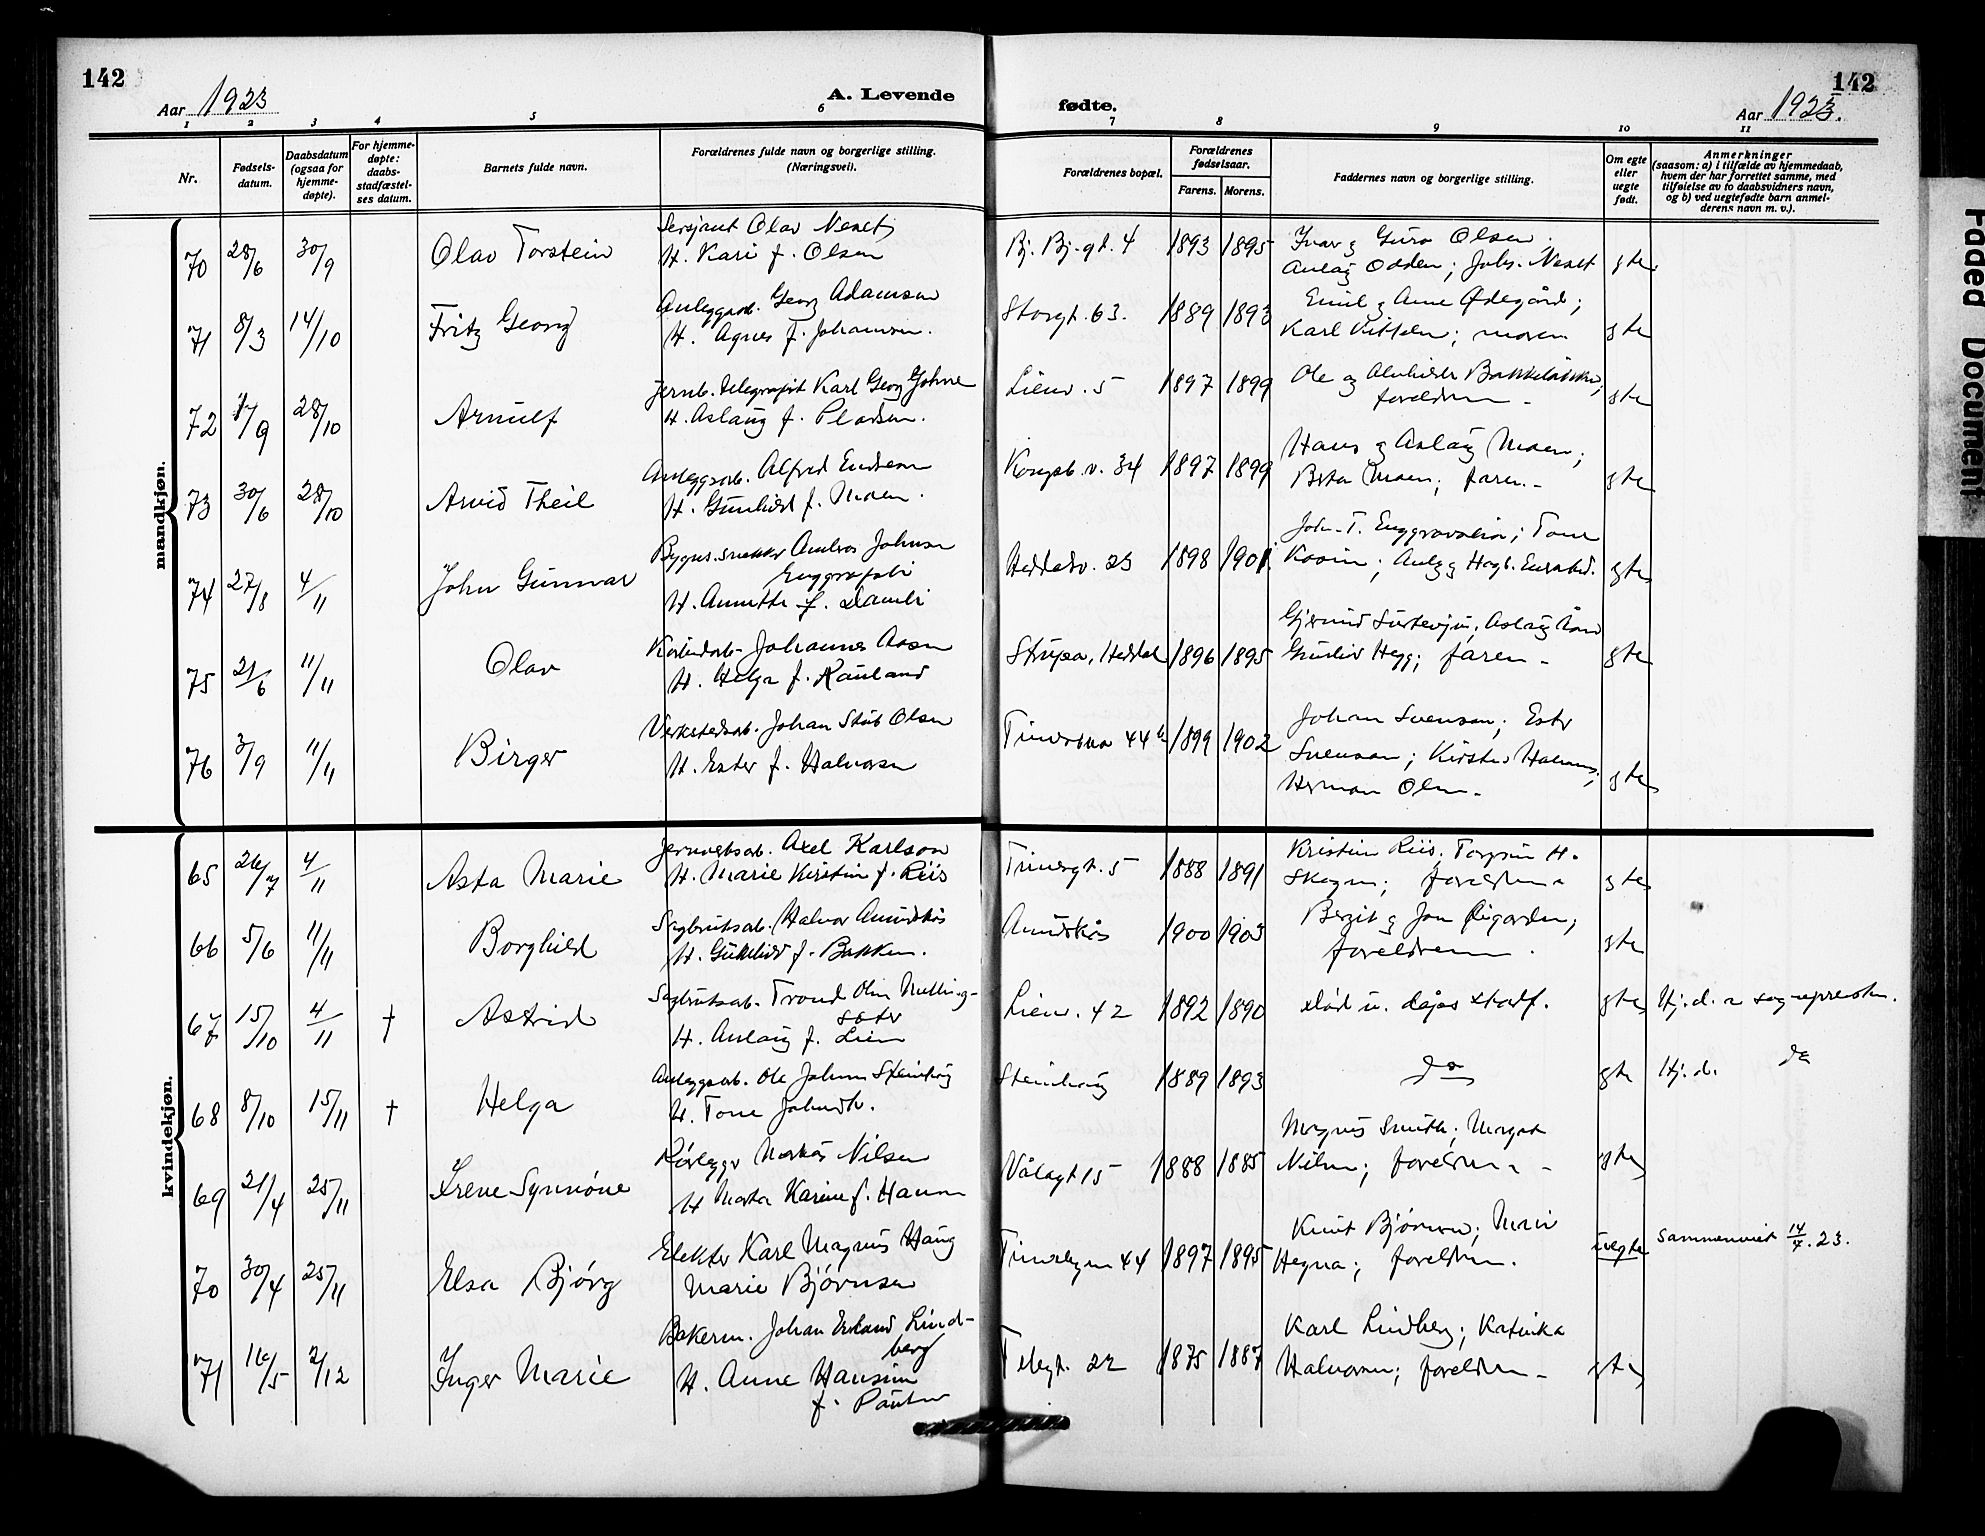 142
Aar 1923
A. Levende
fødte.
142
Aar 1923.
1 2 3 4 5 6 7 8 9 10 11
Nr.
Fødsels-
datum.
Daabsdatum
(ogsaa for
hjemme-
døpte).
For hjemme-
døpte:
daabs-
stadfæstel-
ses datum.
Barnets fulde navn.
Forældrenes fulde navn og borgerlige stilling.
(Næringsvei).
Forældrenes bopæl.
Forældrenes
fødselsaar.
Farens. Morens.
Faddernes navn og borgerlige stilling.
Om egte
eller
uegte
født.
Anmerkninger
(saasom: a) i tilfælde av hjemmedaab,
hvem der har forrettet samme, med
tilføielse av to daabsvidners navn,
og b) ved uegtefødte barn anmel-
derens navn m. v.).
mandkjøn.
70 28/6 30/9 Olav Torstein
Sersjant Olav Neset
H. Kari f. Olsen
Bj. Bj. gt. 4 1893 1895
Ivar g Guro Olsen;
Aslaug Odden; Johs. Neset gte
71 8/3 14/10 Fritz Georg
Anleggsarb. Georg Adamsen
H. Agnes f. Johansen.
Storgt. 63. 1889 1893
Emil g Anne Ødegård;
Karl Kittelsen; moren gte
72 17/9 28/10 Arnulf
Jernb. telegrafist Karl Georg
H. Aslaug f.
Liev. 5 1897 1899
Ole og
foreldrene - gte
73 30/6 28/10 Arvid Theil
Anleggsarb. Alfred Endresen
H. Gunhild f. Moen.
Kongsb. v. 34 1897 1899
Hans g Aslaug Moen;
Berta Moen; faren. - gte
74 27/8 4/11 John Gunnar
Bygn. snekker Andreas Johnsen
H. Annette f. Daneli
Heddalsv. 23 1898 1901
Joh. T. Enggravslia; Tone
gte
75 21/6 11/11 Olav
Johannes Aasen
H. Helga f. Rauland
Strupa, Heddal 1896 1895
Aslaug
Gunliv Hegg; faren - gte
76 3/9 11/11 Birger
Verkstedsarb. Johan Stub Olsen
H. Ester f. Halvorsen
44 b 1899 1902
Johan Svensen; Ester
Svensen; Kirsten Halvorsen;
Herman Olsen. gte
kvindekjøn.
65 26/7 4/11 Asta Marie
Jernverksarb. Axel Karlson
H. Marie Kirstin f. Riis
Tinnegt. 5 1888 1891
Kristin Riis; Torgrim H.
Skogen; foreldrene gte
66 5/6 11/11 Borghild
Sagbruksarb. Halvor Amundkås
H. Gunhild f. Bakken.
Amundkås 1900 1903
Bergit g Jon Øigarden;
foreldrene. gte
67 15/10 4/11 † Astrid
Sagbruksarb. Trond Olsen Melling-
sæter
H. Aslaug f. Lien
Liev. 42 1892 1890
Død u. dåps stadf. gte Hj. d. a sognepresten.
68 8/10 15/11 † Helga
Anleggsarb. Ole Johnsen Steinhaug
H. Tone Johnsdtr.
Steinhaug 1889 1893
do gte Hj. d. do
69 21/4 25/11 Irene Synnøve
Rørlegger Markus Nilsen
H Marta Karine f. Hansen
Vålagt 15 1888 1885
Magnus Smith; Margit
Nilsen; foreldrene - gte
70 30/4 25/11 Elsa Bjørg
Elektr Karl Magnus Haug
Marie Bjørnsen
Tinnebyen 44 1897 1895
Knut Bjørnsen; Mari
Hegna; foreldrene. uegte Sammenviet 14/7. 23.
71 16/5 2/12 Inger Marie
Bakerm. Johan Erland Lind-
berg
H. Anne Hansine
f. Paulsen
Telegt. 22 1875 1887
Karl Lindberg; Katinka
Halvorsen; foreldrene - gte
Faded Document